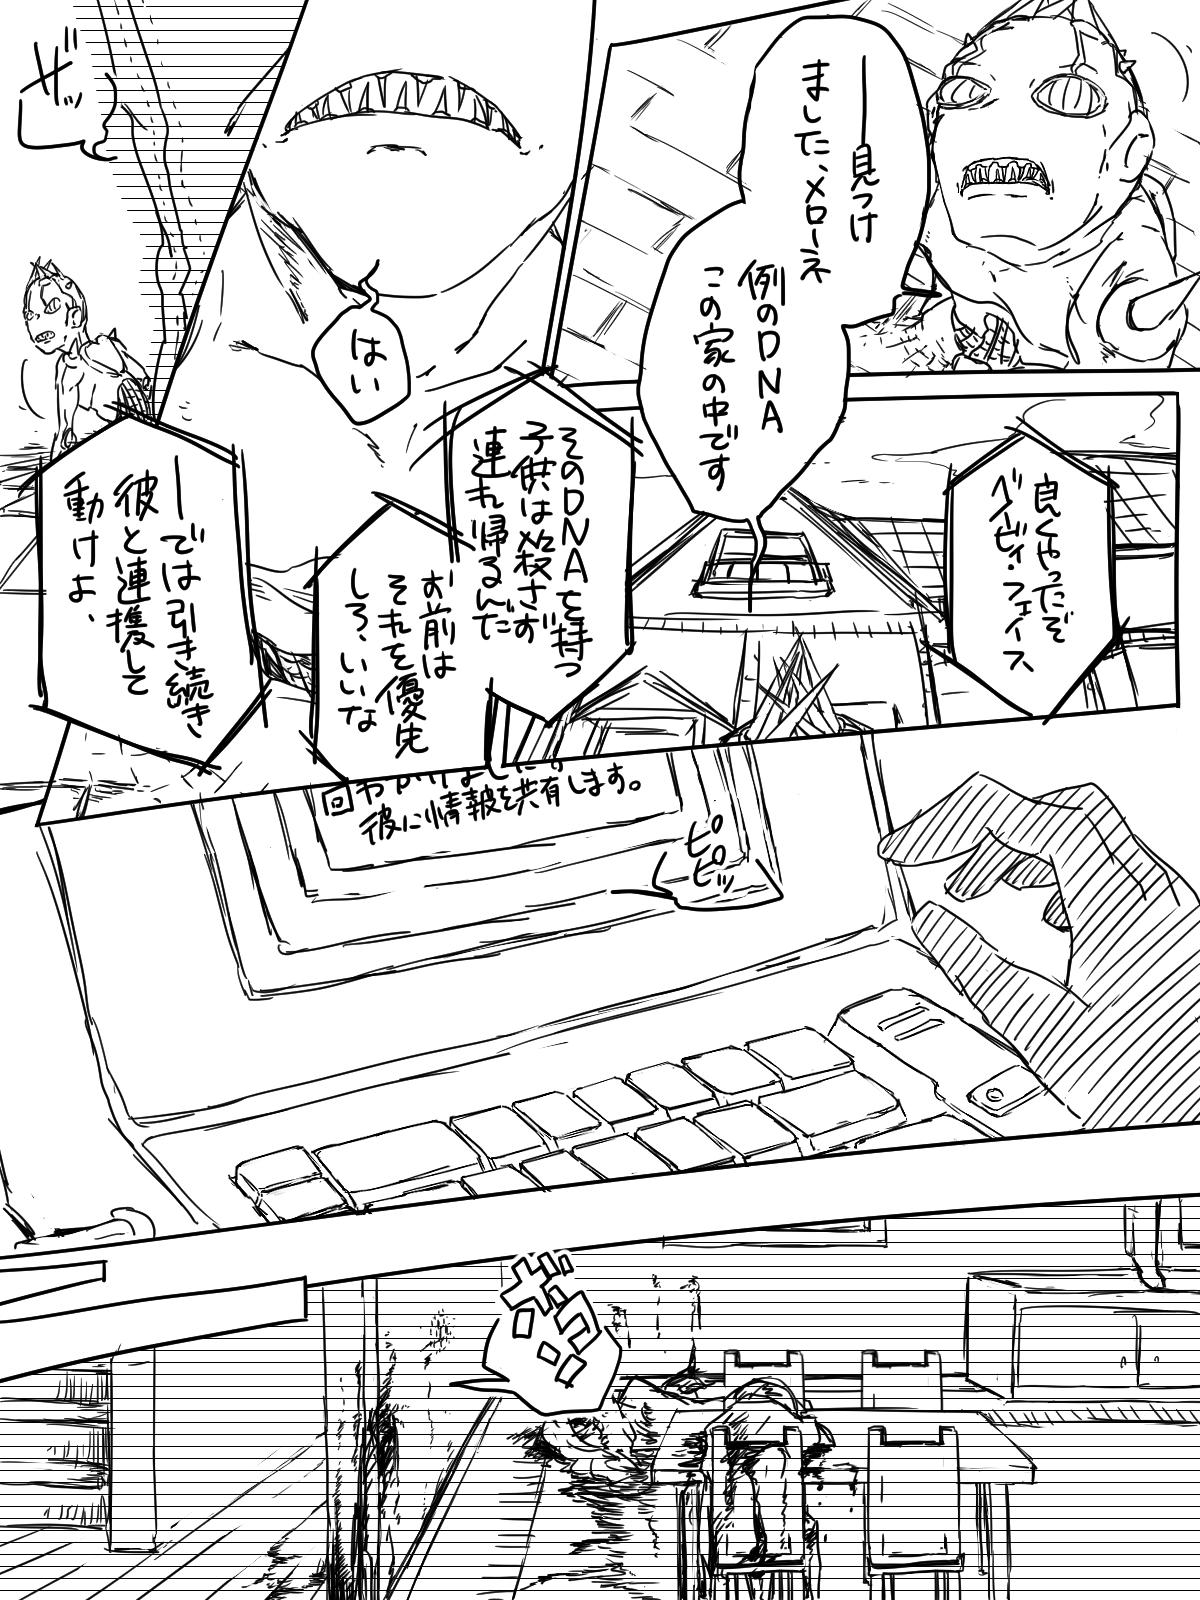 ──見つけ
ました、メローネ
例のDNA
この家の中です
良くやったぞ
ベイビィ・フェイス、
そのDNAを持つ
子供は殺さず
連れ帰るんだ
お前は
それを優先
しろ、いいな
はい
ザッ
──では引き続き
彼と連携して
動けよ、
回
彼に情報を共有します。
ピピピッ
ガシッ